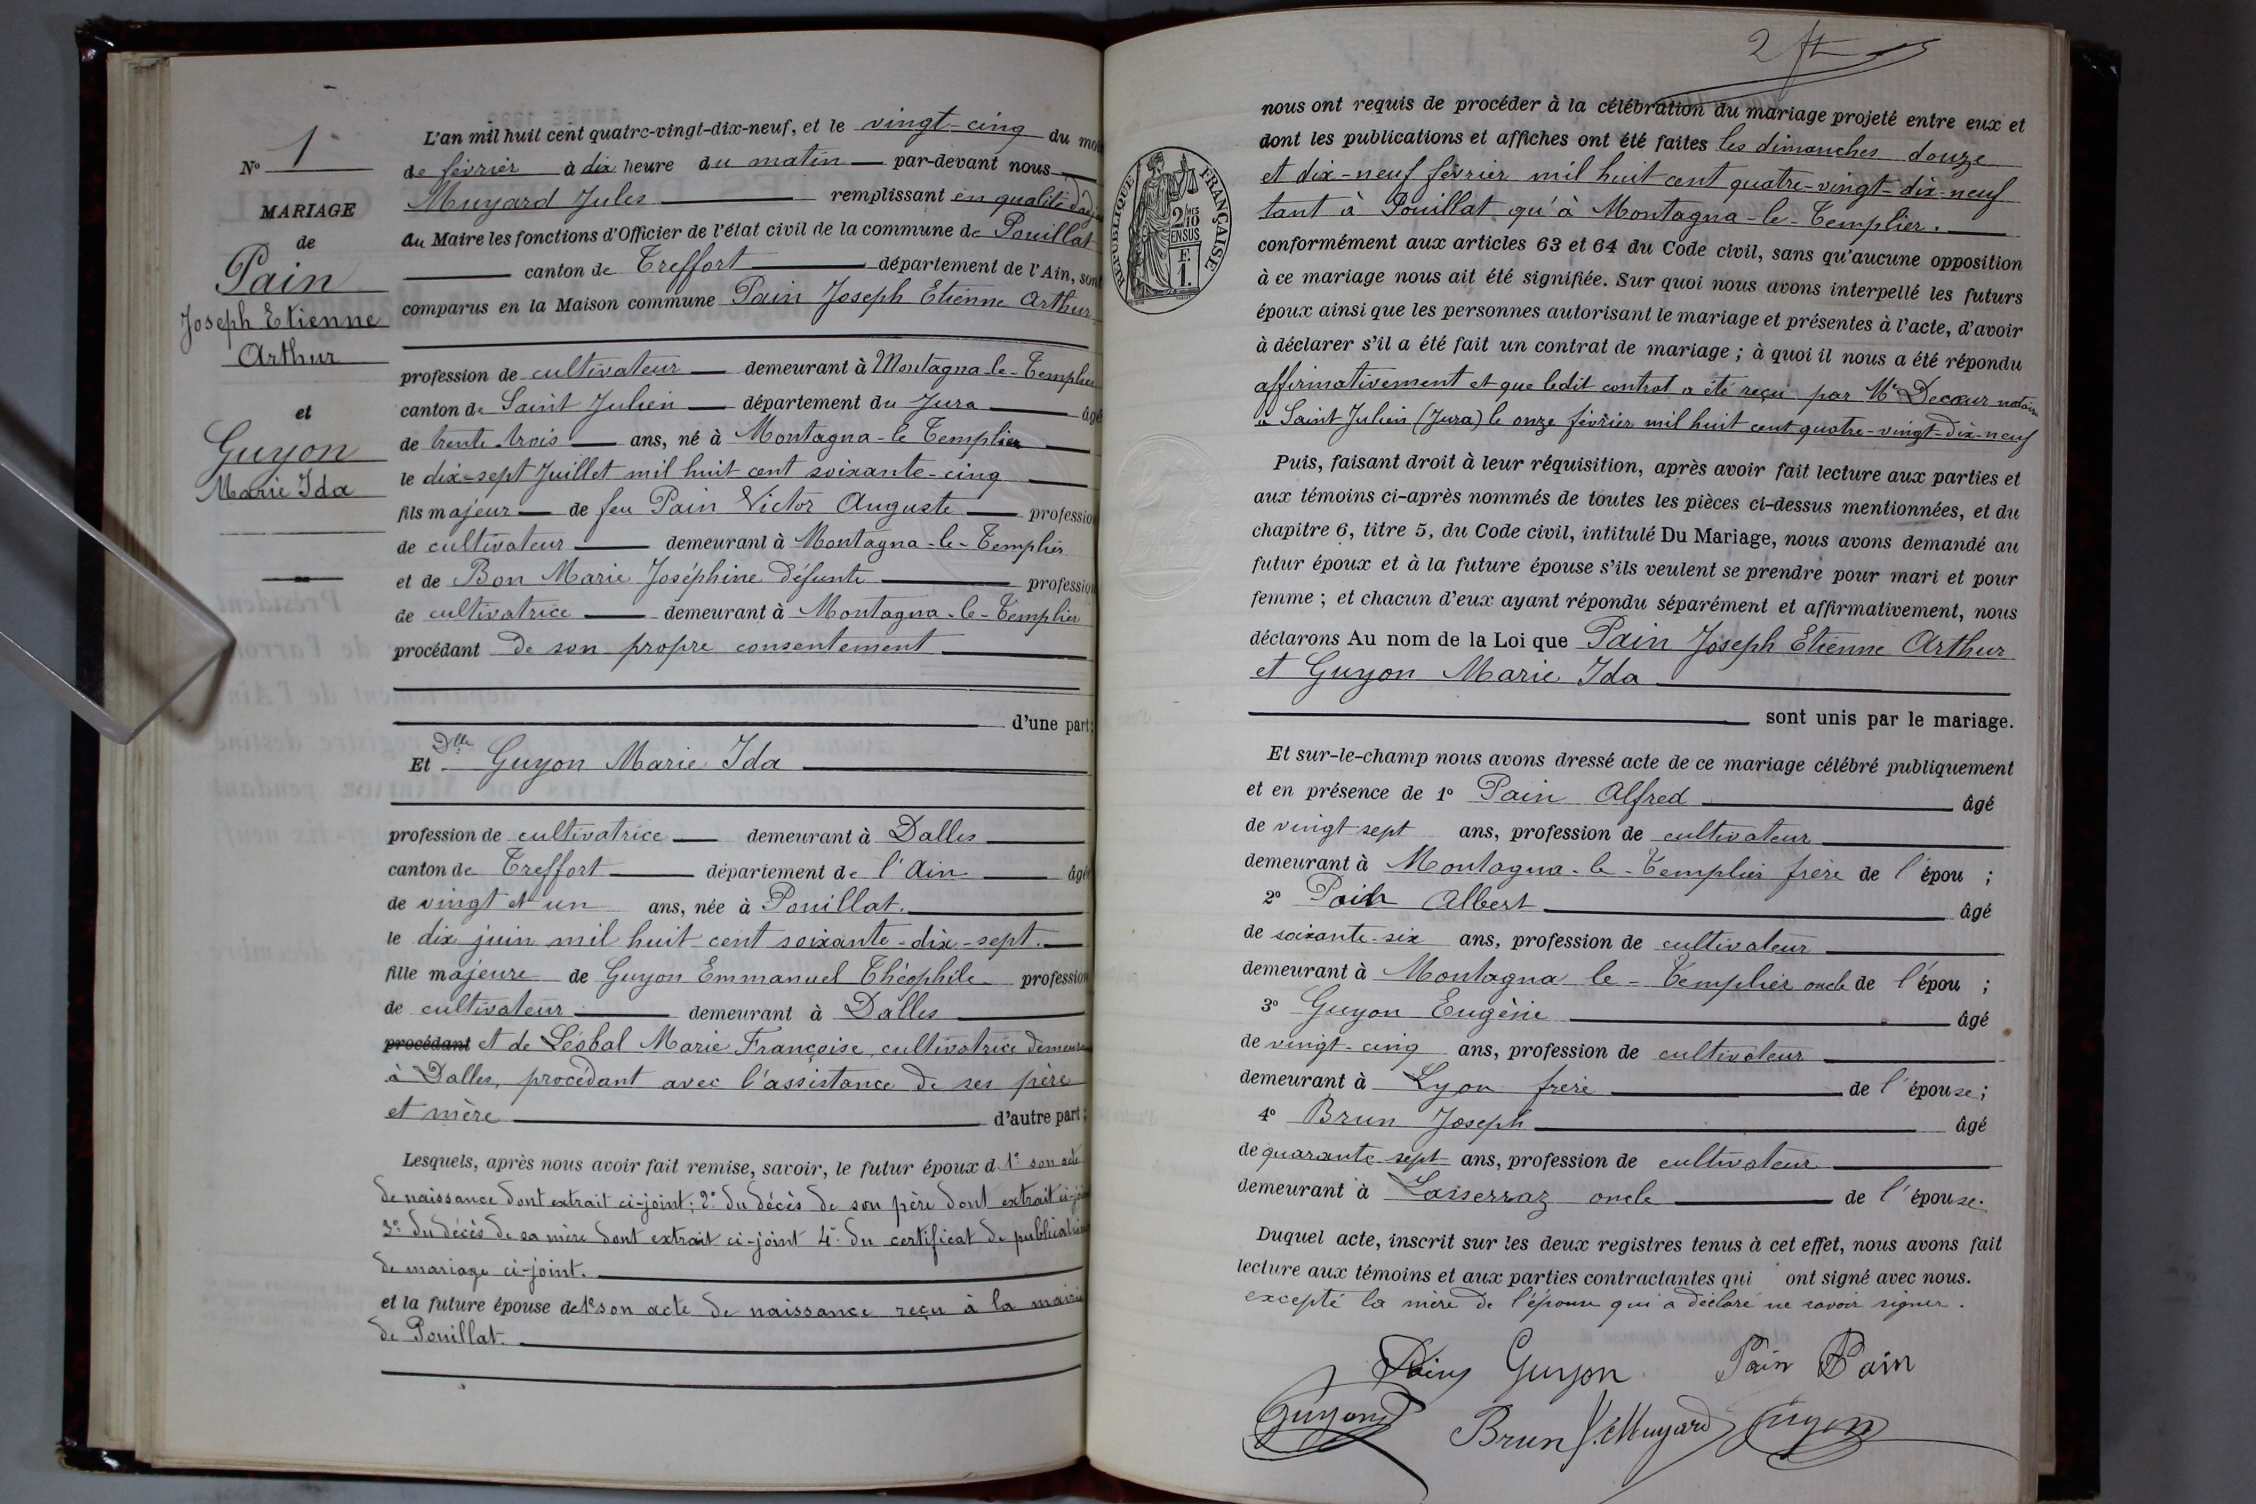 N° 1
MARIAGE
de
Pain
Joseph Etienne
Arthur
et
Guyon
Marie Ida
L'an mil huit cent quatre-vingt-dix-neuf, et le vingt-cinq du mois
de février à dix heure du matin par-devant nous
Muyard Jules remplissant en qualité
du Maire les fonctions d'Officier de l'état civil de la commune de Pouillat
canton de Treffort département de l'Ain, sont
comparus en la Maison commune Pain Joseph Etienne Arthur
profession de cultivateur demeurant à Montagna-le-Templier
canton de Saint Julien département du Jura âgé
de trente trois ans, né à Montagna-le Templier
le dix-sept Juillet mil huit cent soixante-cinq
fils majeur de feu Pain Victor Auguste profession
de cultivateur demeurant à Montagna-le-Templier
et de Bon Marie Joséphine défunte profession
de cultivatrice demeurant à Montagna-le-Templier
procédant de son propre consentement
d'une part:
Et Dlle Guyon Marie Ida
profession de cultivatrice demeurant à Dalles
canton de Treffort département de l'Ain âgée
de vingt et un ans, née à Pouillat.
le dix juin mil huit cent soixante-dix-sept.
fille majeure de Guyon Emmanuel Théophile profession
de cultivateur demeurant à Dalles
procédant et de Léobal Marie Françoise, cultivatrice
à Dalles, procédant avec l'assistance de ses père
et mère d'autre part;
Lesquels, après nous avoir fait remise, savoir, le futur époux d 1° son acte
de naissance dont extrait ci-joint; 2° du décès de son père dont extrait ci-joint
3° du décès de sa mère dont extrait ci-joint 4° du certificat de publication
de mariage ci-joint.
et la future épouse de 1° son acte de naissance reçu à la mairie
de Pouillat.
2
nous ont requis de procéder à la célébration du mariage projeté entre eux et
dont les publications et affiches ont été faites les dimanches douze
et dix-neuf février mil huit cent quatre-vingt-dix-neuf
tant à Pouillat qu'à Montagna-le-Templier.
conformément aux articles 63 et 64 du Code civil, sans qu'aucune opposition
à ce mariage nous ait été signifiée. Sur quoi nous avons interpellé les futurs
époux ainsi que les personnes autorisant le mariage et présentes à l'acte, d'avoir
à déclarer s'il a été fait un contrat de mariage; à quoi il nous a été répondu
affirmativement et que ledit contrat a été reçu par Me Decœur notaire
à Saint Julien (Jura) le onze février mil huit cent quatre-vingt-dix-neuf
Puis, faisant droit à leur réquisition, après avoir fait lecture aux parties et
aux témoins ci-après nommés de toutes les pièces ci-dessus mentionnées, et du
chapitre 6, titre 5, du Code civil, intitulé Du Mariage, nous avons demandé au
futur époux et à la future épouse s'ils veulent se prendre pour mari et pour
femme; et chacun d'eux ayant répondu séparément et affirmativement, nous
déclarons Au nom de la Loi que Pain Joseph Etienne Arthur
et Guyon Marie Ida
sont unis par le mariage.
Et sur-le-champ nous avons dressé acte de ce mariage célébré publiquement
et en présence de 1° Pain Alfred âgé
de vingt-sept ans, profession de cultivateur
demeurant à Montagna-le-Templier frère de l'épou ;
2° Pain Albert âgé
de soixante-six ans, profession de cultivateur
demeurant à Montagna le-Templier oncle de l'épou ;
3° Guyon Eugène âgé
de vingt-cinq ans, profession de cultivateur
demeurant à Lyon frère de l'épouse;
4° Brun Joseph âgé
de quarante sept ans, profession de cultivateur
demeurant à Lasserraz oncle de l'épouse.
Duquel acte, inscrit sur les deux registres tenus à cet effet, nous avons fait
lecture aux témoins et aux parties contractantes qui ont signé avec nous.
excepté la mère de l'épouse qui a déclaré ne savoir signer.
Pain Guyon Pain Pain
Guyon Brun J. Muyard Guyon
RÉPUBLIQUE FRANÇAISE
2/10 EN SUS
F. 1.